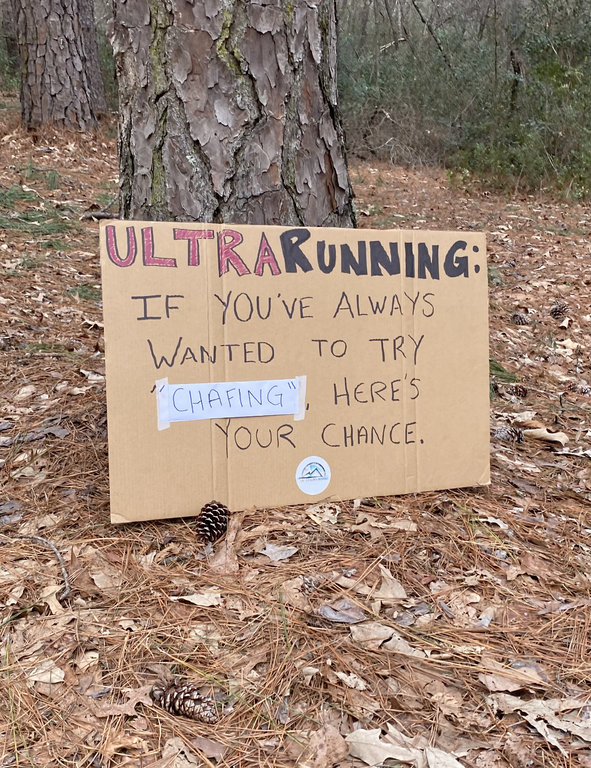 ULTRARUNNING:
IF YOU'VE ALWAYS
WANTED TO TRY
"CHAFING", HERE'S
YOUR CHANCE.